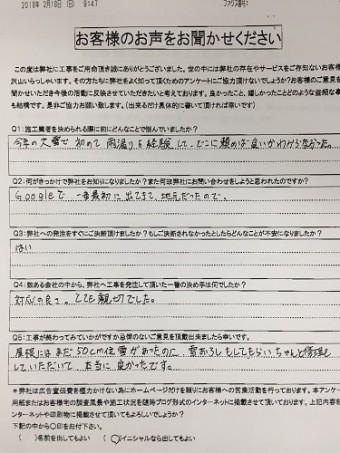 2018年 2月18日 (日) 9:47
ファクス番号:
お客様のお声をお聞かせください
この度は弊社に工事をご用命頂き誠にありがとうございました。世の中には弊社の存在やサービスをご存知ないお客様が
沢山いらっしゃいます。その方たちに弊社をよく知って頂くためのアンケートにご協力頂けないでしょうか?お客様のご意見を
お聞かせいただき今後の活動に反映させていただきたいと考えております。良かったこと、嬉しかったことどのような些細な事
も結構です。是非ご協力お願い致します。(出来るだけ具体的に書いて頂ければ幸いです)
Q1:施工業者を決められる際に前にどんなことで悩んでいましたか?
今年の大雪で初めて雨漏りを経験して、どこに頼めば良いかわからなかった。
Q2:何がきっかけで弊社をお知りになりましたか?また何故弊社にお問い合わせをしようと思われたのですか?
Googleで一番最初に出てきて、地元だったので。
Q3:弊社への発注をすぐにご決断頂けましたか?もしご決断されなかったとしたらどんなことが不安になりましたか?
はい
Q4:数ある会社の中から、弊社へ工事を発注して頂いた一番の決め手は何でしたか?
対応の良さ。とても親切でした。
Q5:工事が終わってみていかがですか忌憚のないご意見を頂戴出来ましたら幸いです。
屋根にはまだ50cm位雪があったのに、雪おろしもしてもらいちゃんと修理して
していただいて本当に良かったです。
*弊社は広告宣伝費を極力かけない為にホームページだけを頼りにお客様への営業活動を行っております。本アンケー
用紙またはお客様宅の調査風景や施工状況を随時ブログ形式のインターネットに掲載させて頂いております。上記内容を
インターネットや印刷物に掲載させて頂いてもよろしいでしょうか?
下記の中から〇印をお付け下さい。
( )名前を出してもよい (〇)イニシャルなら出してもよい